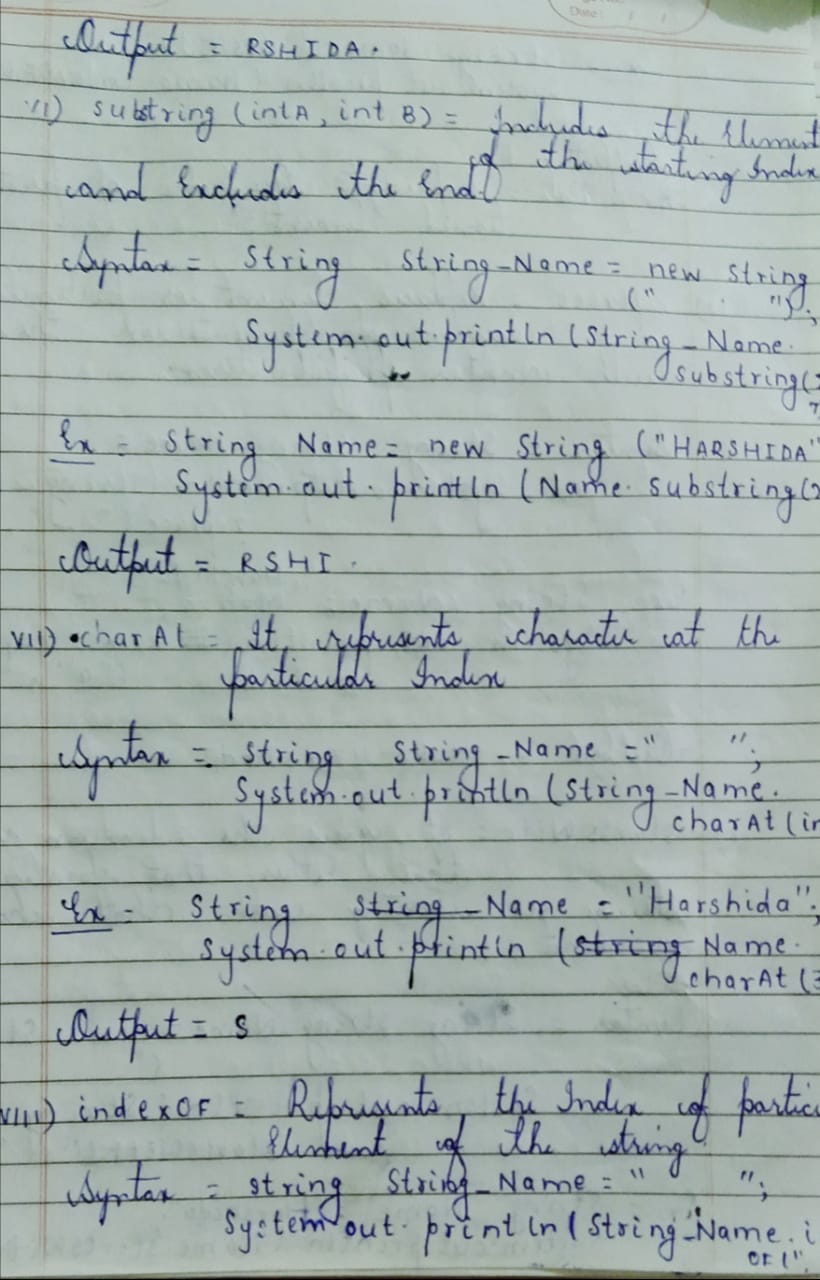 Date:
Output = RSHIDA.
VI) substring (int A, int B) = Includes the Element
of the starting Index
and Excludes the End
Syntax = String String_Name = new String
(" ");
System.out.println (String_Name.
substring(
Ex = String Name = new String ("HARSHIDA"
System.out.println (Name.substring(2
Output = RSHI.
VII) •char At = It represents character at the
particular Index
Syntax = String String_Name = " ";
System.out.println (String_Name.
charAt (in
Ex = String String_Name = "Harshida";
System.out.println (string Name.
charAt (3
Output = s
VIII) indexOF = Represents the Index of partic
Element of the string
Syntax = string String_Name = " ";
System out. println (String_Name.i
OF ("